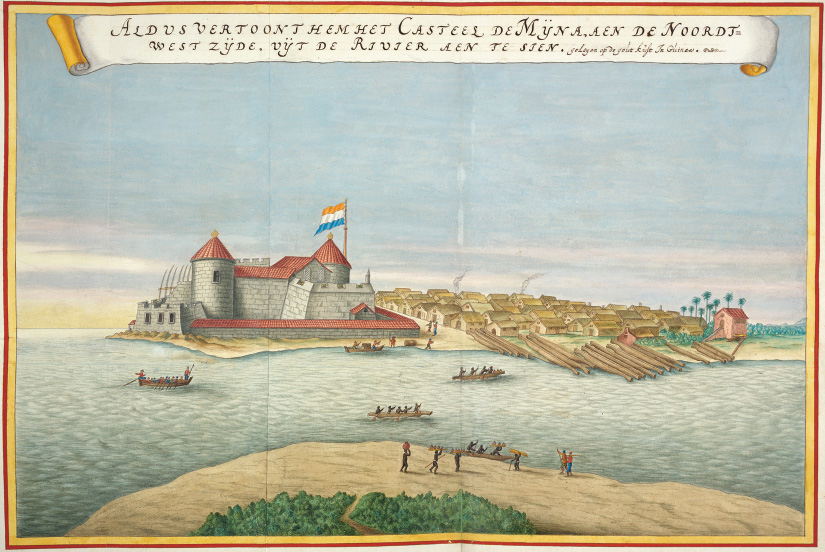 ALDUS VERTOONT HEM HET CASTEEL DE MŸNA, AEN DE NOORDT=
WEST ZŸDE, VŸT DE RIVIER AEN TE SIEN. gelegen op de gout kust In Guinea.